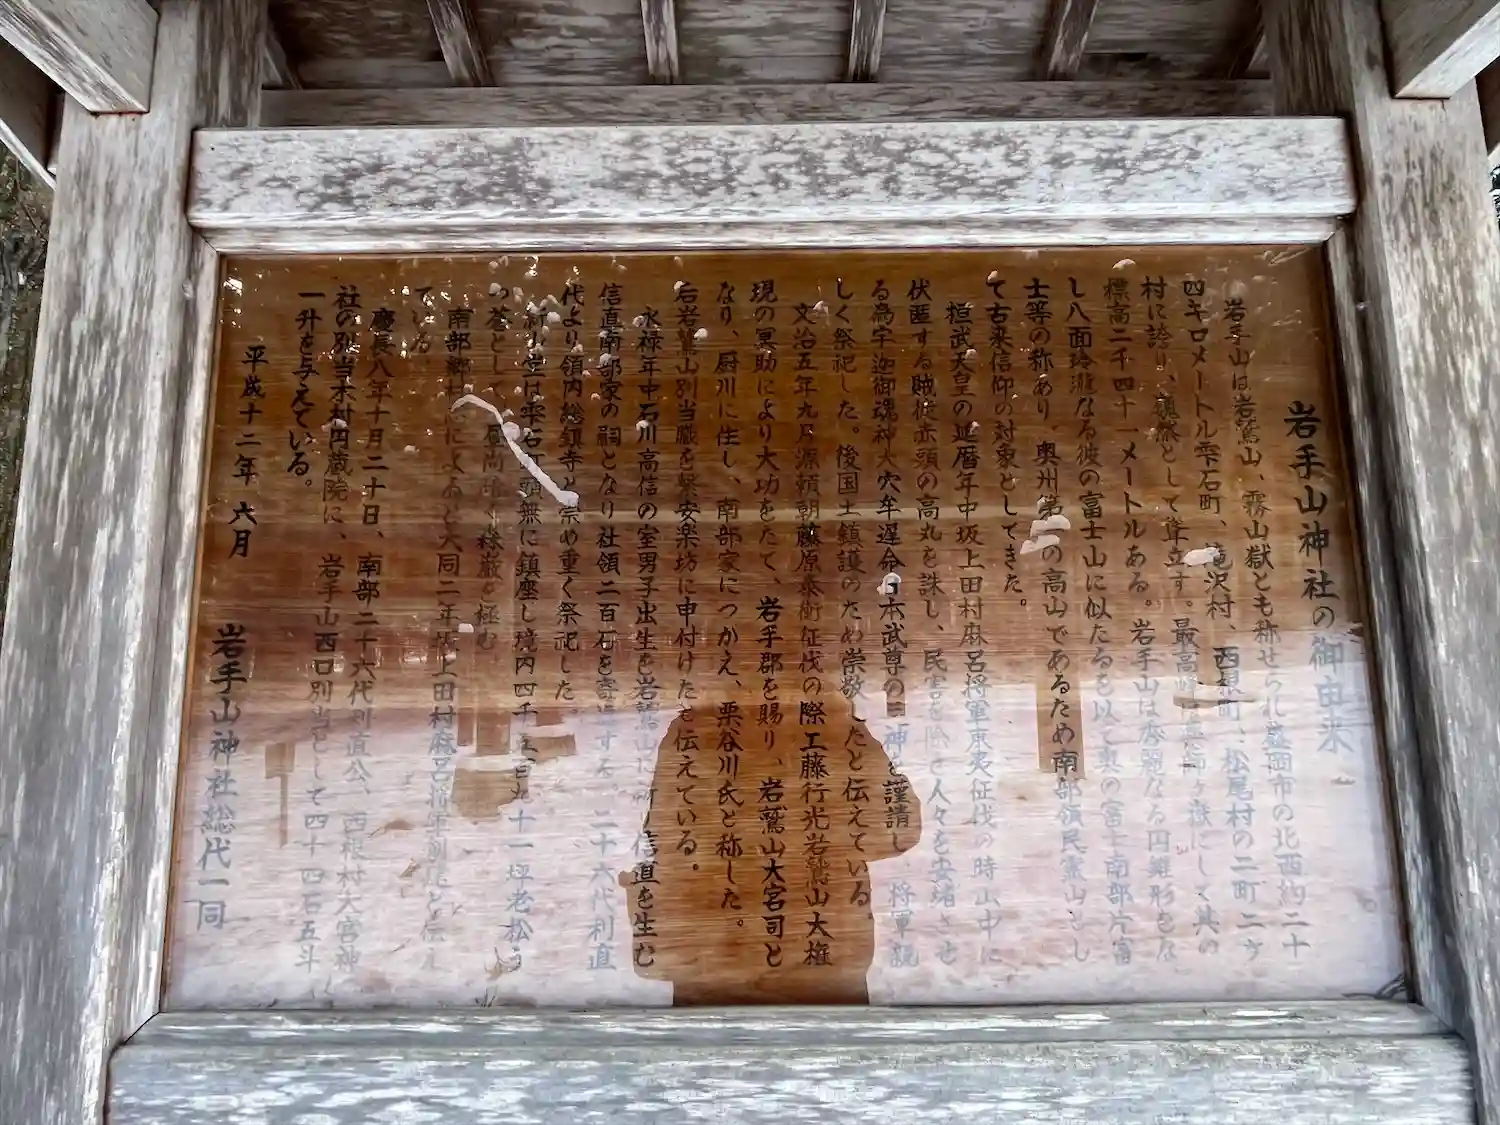 岩手山神社の御由来
岩手山は岩鷲山、霧山獄とも称せられ盛岡市の北西約二十
四キロメートル雫石町、滝沢村、西根町、松尾村の二町二ヶ
村に誇り、巍然として聳立す。最高峰は薬師ヶ嶽にしく其の
標高二千四十一メートルある。岩手山は秀麗なる円錐形をな
し八面玲瓏なる彼の富士山に似たるを以て奥の富士南部片富
士等の称あり、奥州第一の高山であるため南部領民霊山とし
て古来信仰の対象としてきた。
桓武天皇の延暦年中坂上田村麻呂将軍東夷征伐の時山中に
伏匿する賊徒赤頭の高丸を誅し、民害を除き人々を安堵させ
る為宇迦御魂神大穴牟遅命日本武尊の三神を謹請し 将軍親
しく祭祀した。後国土鎮護のため崇敬したと伝えている。
文治五年九月源頼朝藤原泰衡征伐の際工藤行光岩鷲山大権
現の冥助により大功をたて、岩手郡を賜り、岩鷲山大宮司と
なり、厨川に住し、南部家につかえ、栗谷川氏と称した。
后岩鷲山別当職を祭安楽坊に申付けたと伝えている。
永禄年中石川高信の室男子出生を岩鷲山に祈り信直を生む
信直南部家の嗣となり社領二百石を寄進する。二十六代利直
代より領内総鎮寺と崇め重く祭祀した。
新山堂は雫石町頭無に鎮座し境内四千五百九十一坪老松う
っ蒼として 昼尚暗く森厳を極む
南部郷村誌によると大同二年坂上田村麻呂将軍創建と伝え
ている
慶長八年十月二十日、南部二十六代利直公 西根村大宮神
社の別当木村円蔵院に、岩手山西口別当として四十四石五斗
一升を与えている。
平成十二年 六月 岩手山神社総代一同